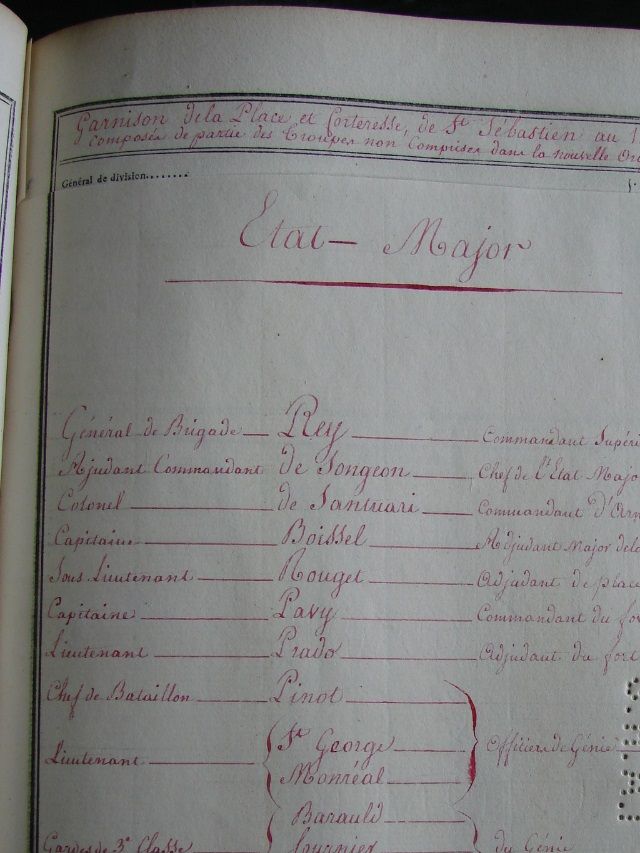 Garnison de la Place et Forteresse, de St Sébastien au 1
Composée de partie des Troupes non Comprises dans la nouvelle Or
Général de division........
Etat - Major
Général de Brigade Rey Commandant Supéri
Ajudant Commandant de Songeon Chef de l'Etat Majo
Colonel de Santuari Commandant D'
Capitaine Boissel Adjudant Major de
Sous Lieutenant Rouget Adjudant de place
Capitaine Pavy Commandant du for
Lieutenant Prado Adjudant du fort
Chef de Bataillon Pinot
Lieutenant St George Officiers de Génie
Monréal
Barauld
Gardes de 3e Classe fournier du Génie